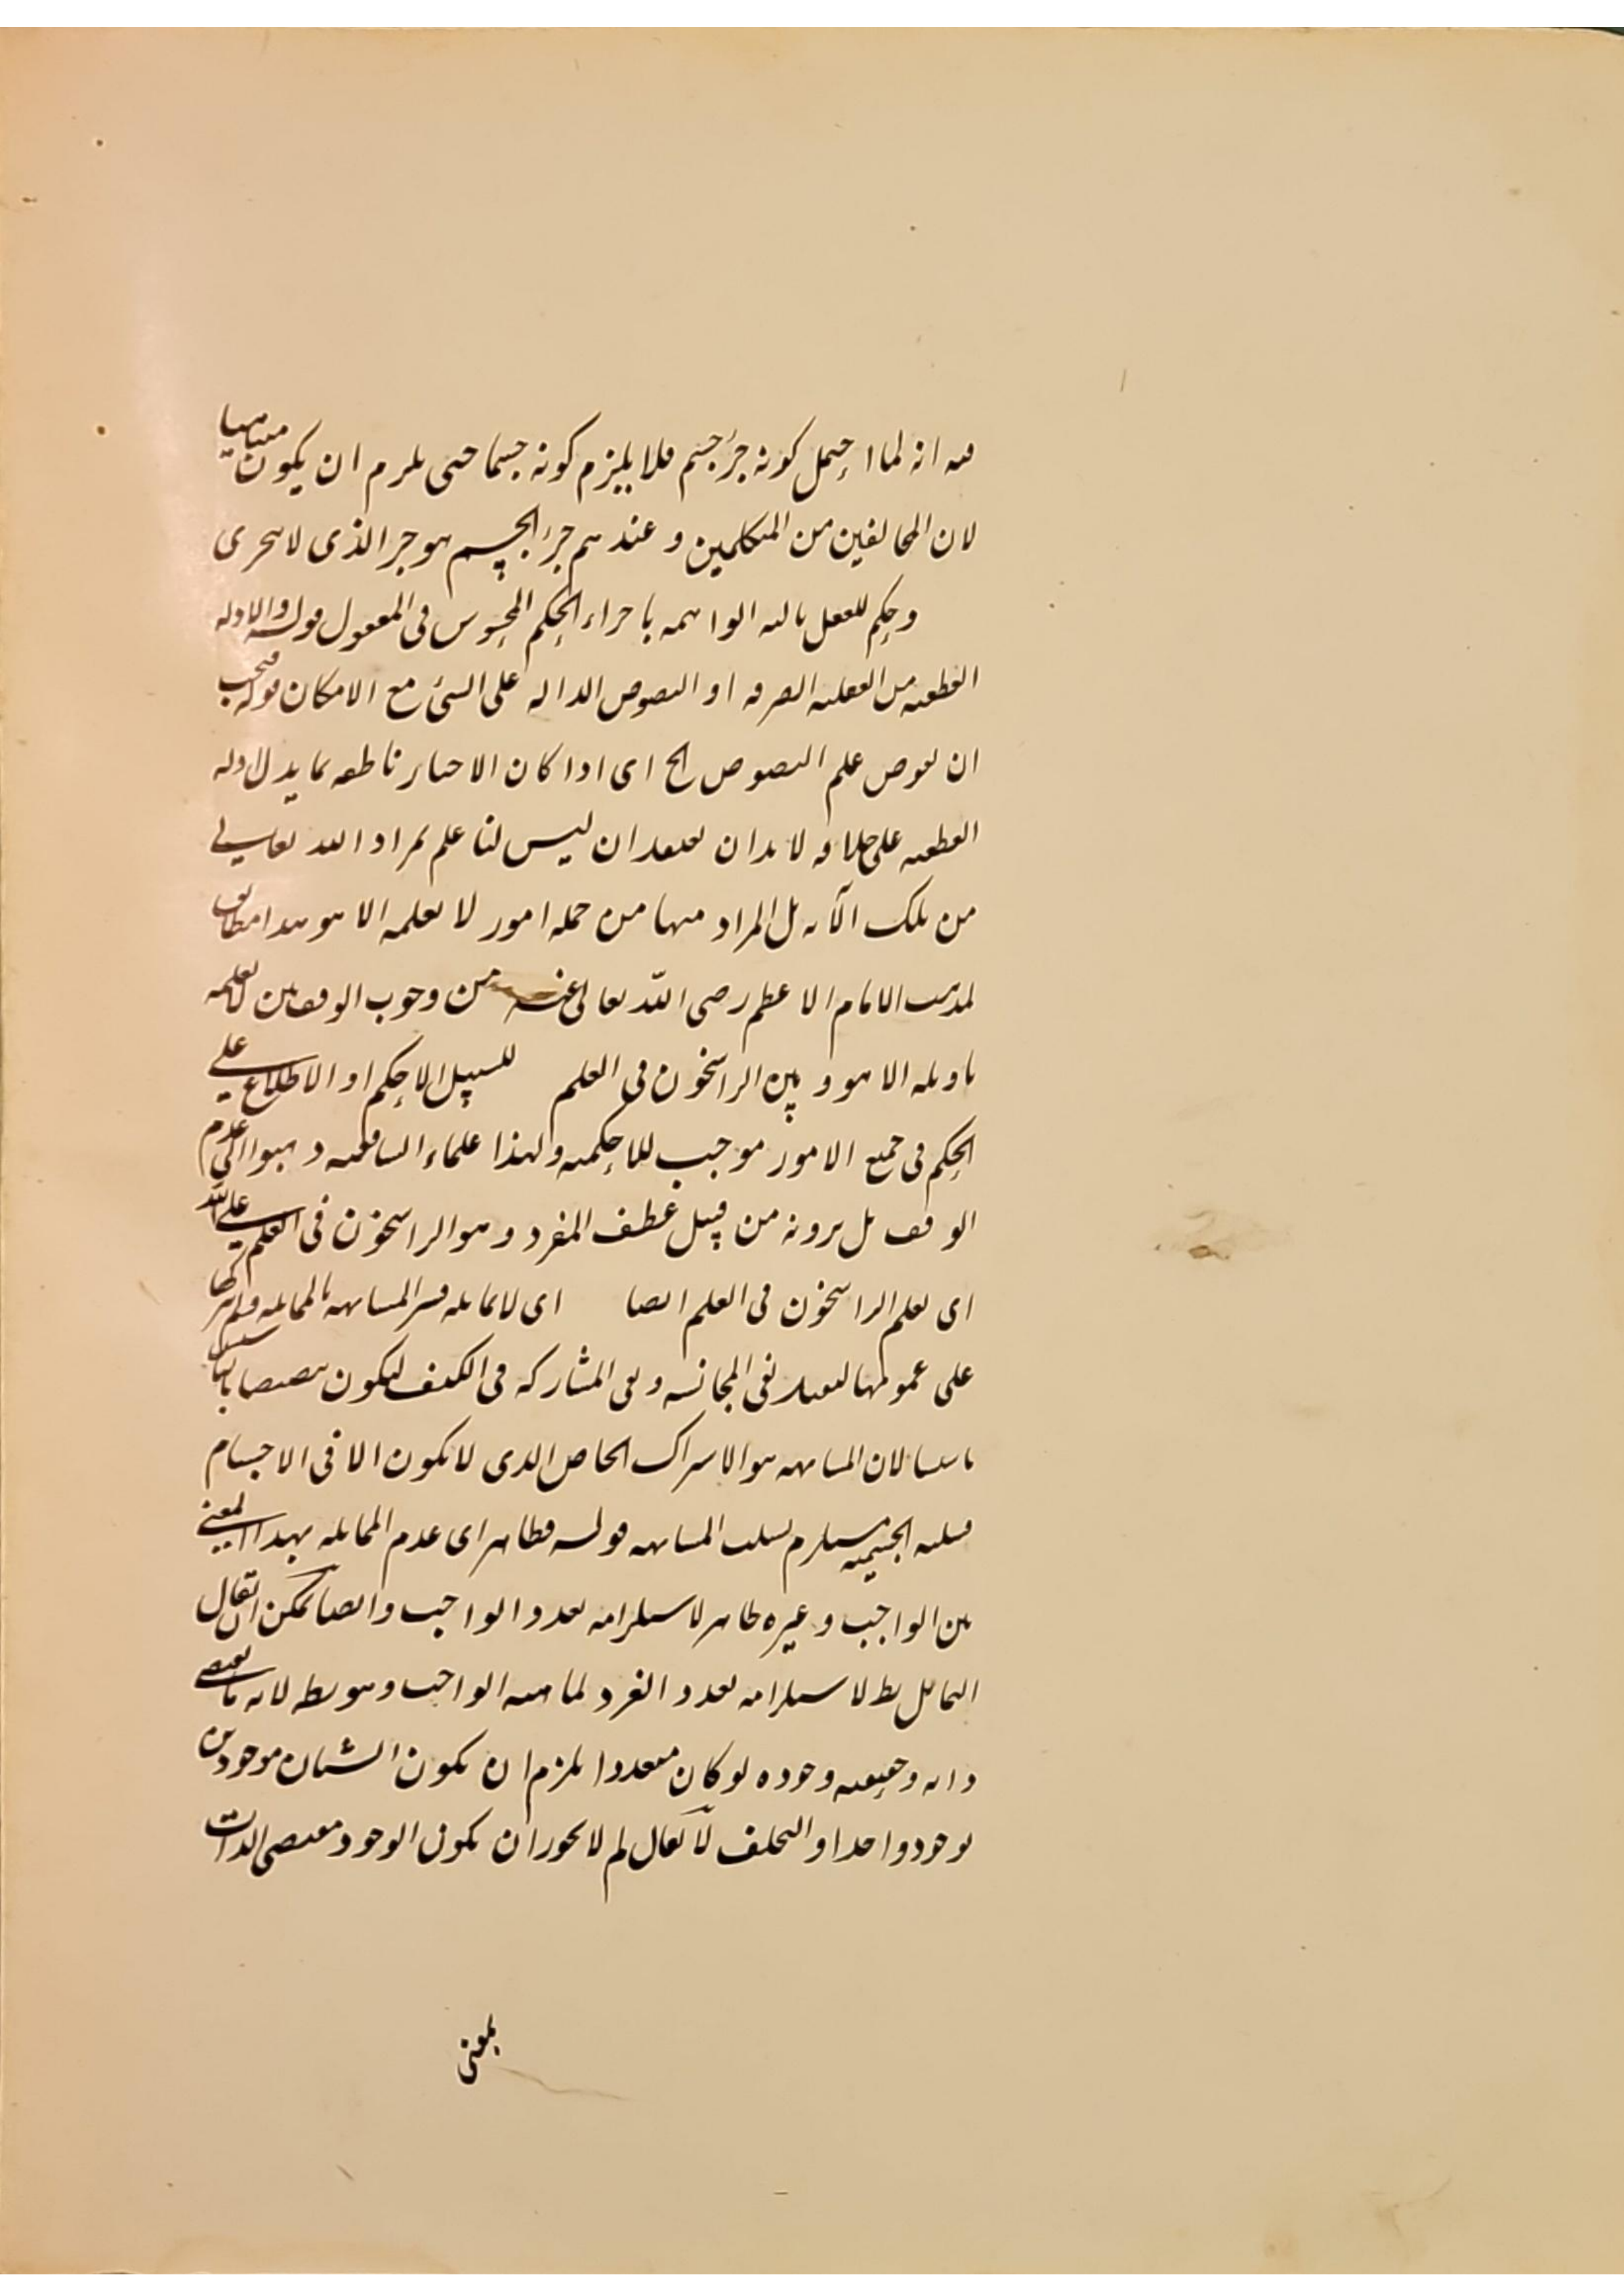 فيه انه لما احتمل كونه جزء جسم فلا يلزم كونه جسما حتى يلزم ان يكون متناهيا
لان المخالفين من المتكلمين و عندهم جزء الجسم هو جزء الذى لا يتجزى
وحكم للعقل بالبه الواهمه باجراء الحكم المحسوس فى المعقول قوله والادله
القطعيه من العقليه الصرفه او النصوص الداله على الشئ مع الامكان قوله فيجب
ان يفوض علم النصوص الخ اى اذا كان الاخبار ناطقه بما يدل ادله
القطعيه على خلافه لا بد ان نعتقد ان ليس لنا علم بمراد الله تعالى
من تلك الآيه بل المراد منها من جمله امور لا يعلمه الا هو هذا مطابق
لمذهب الامام الاعظم رضى الله تعالى عنه من وجوب الوقف بين لا يعلمه
تاويله الا هو و بين الراسخون فى العلم للسبيل الاحكم او الاطلاع على
الحكم فى جميع الامور موجب للاحكميه ولهذا علماء الشافعيه ذهبوا الى عدم
الوقف بل يرونه من قبيل عطف المفرد و هو الراسخون فى العلم على الله
اى يعلم الراسخون فى العلم ايضا اى لا يماثله فسر المشابهه بالمماثله ولم يتركها
على عمومها ليفيد نفى المجانسه و نفى المشاركه فى الكيف ليكون تنصيصا
تاسيسا لان المشابهه هو الاشتراك الخاص الذى لا يكون الا فى الاجسام
فسلب الجسميه مستلزم لسلب المشابهه قوله فظاهر اى عدم المماثله بهذا المعنى
بين الواجب و غيره ظاهر لاستلزامه تعدد الواجب و ايضا يمكن ان يقال
التماثل بط لاستلزامه تعدد الفرد لماهيه الواجب و هو بط لانه ما يقتضى
ذاته و حقيقته وجوده لو كان متعددا يلزم ان يكون الشيئان موجودين
بوجود واحد او التخلف لا يقال لم لا يجوز ان يكون الوجود مقتضى الذات
بمعنى